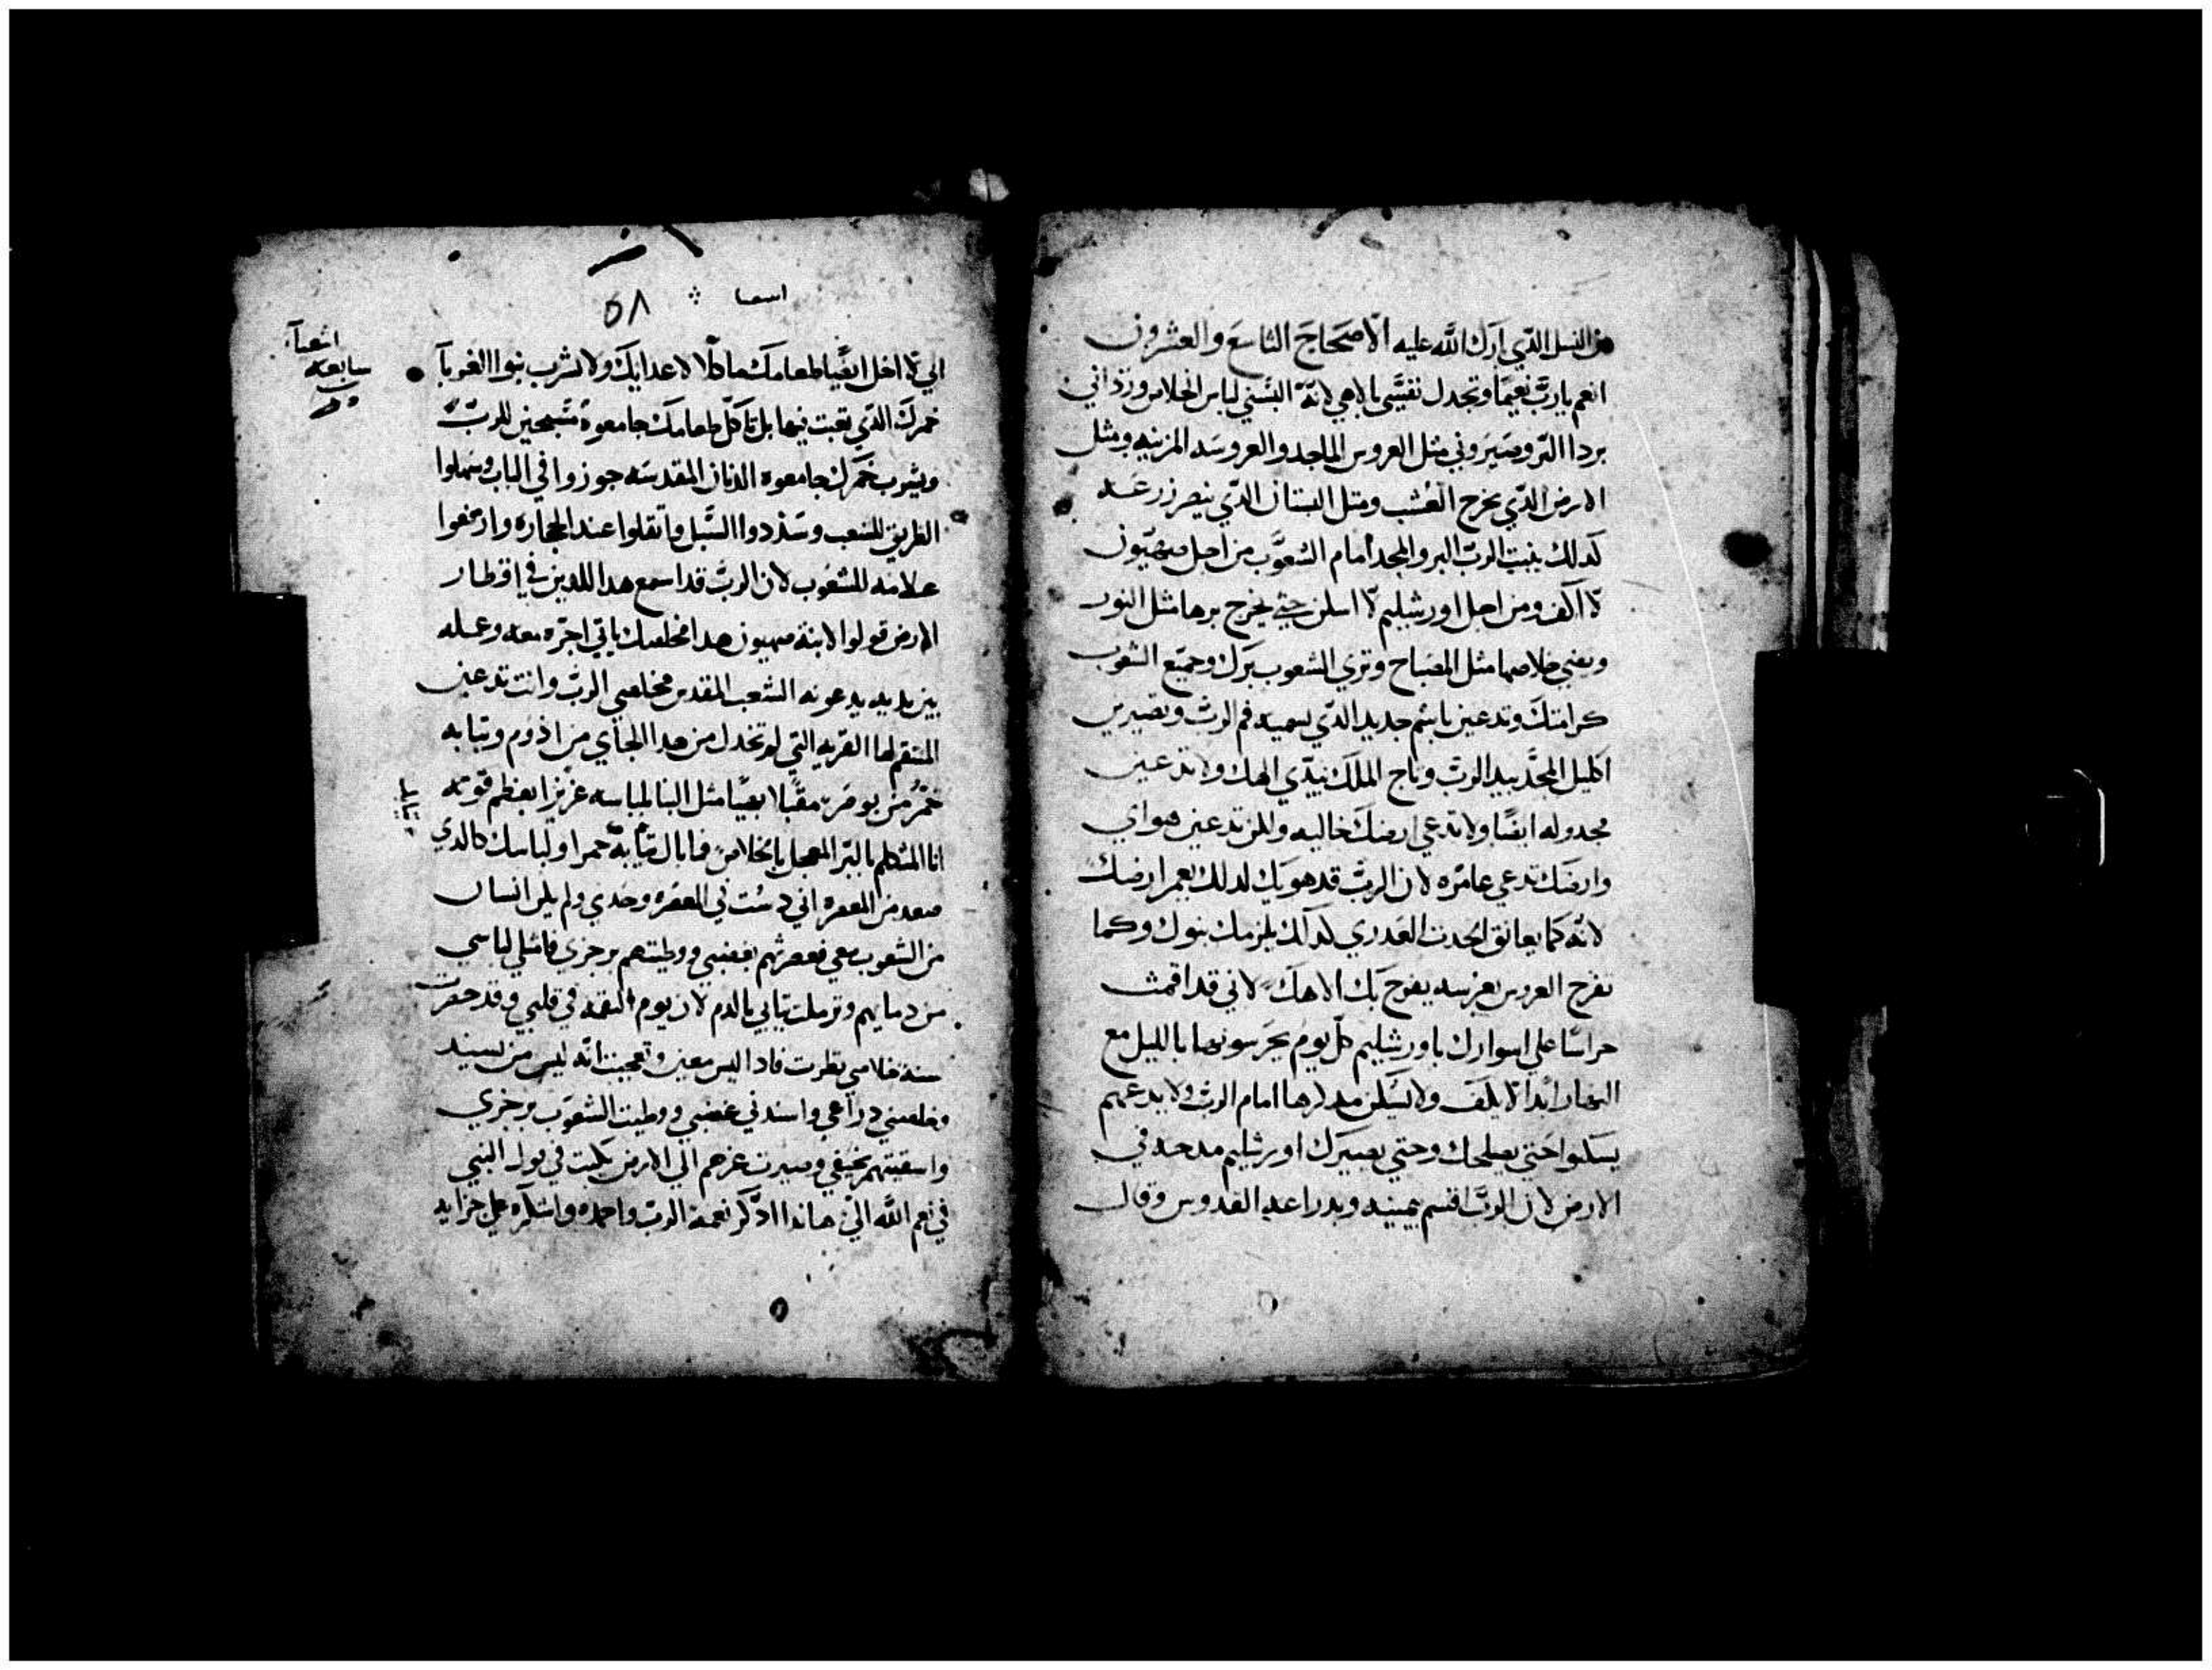 من النسل الذي ارك الله عليه الاصحاح التاسع والعشرون
انعم يارب نعيما وتجدل نفسي بالاهي لانه البسني لباس الخلاص ورداني
بردا البر وصيروني مثل العروس الماجد والعروسه المزينه ومثل
الارض الذي يخرج العشب ومثل البستان الذي ينصر زرعه
كدلك ينبت الرب البر والمجد امام الشعوب من اجل صهيون
لا اكف ومن اجل اورشليم لا اسلن حتي يخرج برها مثل النور
ويضي خلاصها مثل المصباح وتري الشعوب برك وجميع الشعوب
كرامتك وتدعين باسم جديد الذي يسميه فم الرب وتصيرين
اكليل المجد بيد الرب وتاج الملك بيدي الهك ولا تدعين
مخدوله ايضا ولا تدعي ارضك خاليه ولكن تدعين هواي
وارضك تدعي عامره لان الرب قد هويك لدلك يعمر ارضك
لانه كما يعانق الحدث العدري كدلك يلزمك بنوك وكما
تفرح العروس بعرسه يفرح بك الاهك لاني قد اقمت
حراسا علي اسوارك ياورشليم كل يوم يحرسونها بالليل مع
النهار ابدا لا يكف ولا يسكن مدكرها امام الرب ولا يدعهم
يسكنوا حتي يصلحك وحتي يصيرك اورشليم مدحه في
الارض لان الرب اقسم بيمينه وبدراعه القدوس وقال
اسعيا
٥٨
اشعيا
سابعه
الي لا اجعل ايضا طعامك ماكلا لاعدايك ولا يشرب بنوا الغربا
خمرك الذي تعبت فيها بل تاكل طعامك جامعوه مسبحين للرب
ويشرب خمرك جامعوه الديان المقدسه جوزوا في الباب وسهلوا
الطريق للشعب وسددوا السبل وانقلوا عند الحجاره وارفعوا
علامه للشعوب لان الرب قد اسمع هدا اللدين في اقطار
الارض قولوا لابنة صهيون هدا مخلصك ياتي اجره معه وعمله
بين يديه يدعونه الشعب المقدس مخلصي الرب وانت تدعين
المنتقم لها القريه التي لم تخدل من هدا الجاي من ادوم وثيابه
حمر من بوصر مقبلا بهيا مثل البنا لباسه عزيزا بعظم قوته
انا المتكلم بالبر المعجل بالخلاص فما بال ثيابه حمرا ولباسك كالدي
صعد من المعصره اني دست في المعصره وحدي ولم يكن انسان
من الشعوب معي فعصرتهم بغضبي ووطيتهم برجزي فامتلي لباسي
من دمايهم وترملت ثيابي بالدم لان يوم النقمه في قلبي وقد حضرت
سنة خلاصي نظرت فادا ليس معين وتعجبت انه ليس من يسند
فخلصني دراعي واسندني غضبي ووطيت الشعوب برجزي
واسقيتهم بخيفي وصيرت عزهم الي الارض بكيت في قول النبي
في نعم الله الي هاندا ادكر نعمة الرب واحمده واشكره علي جزايه